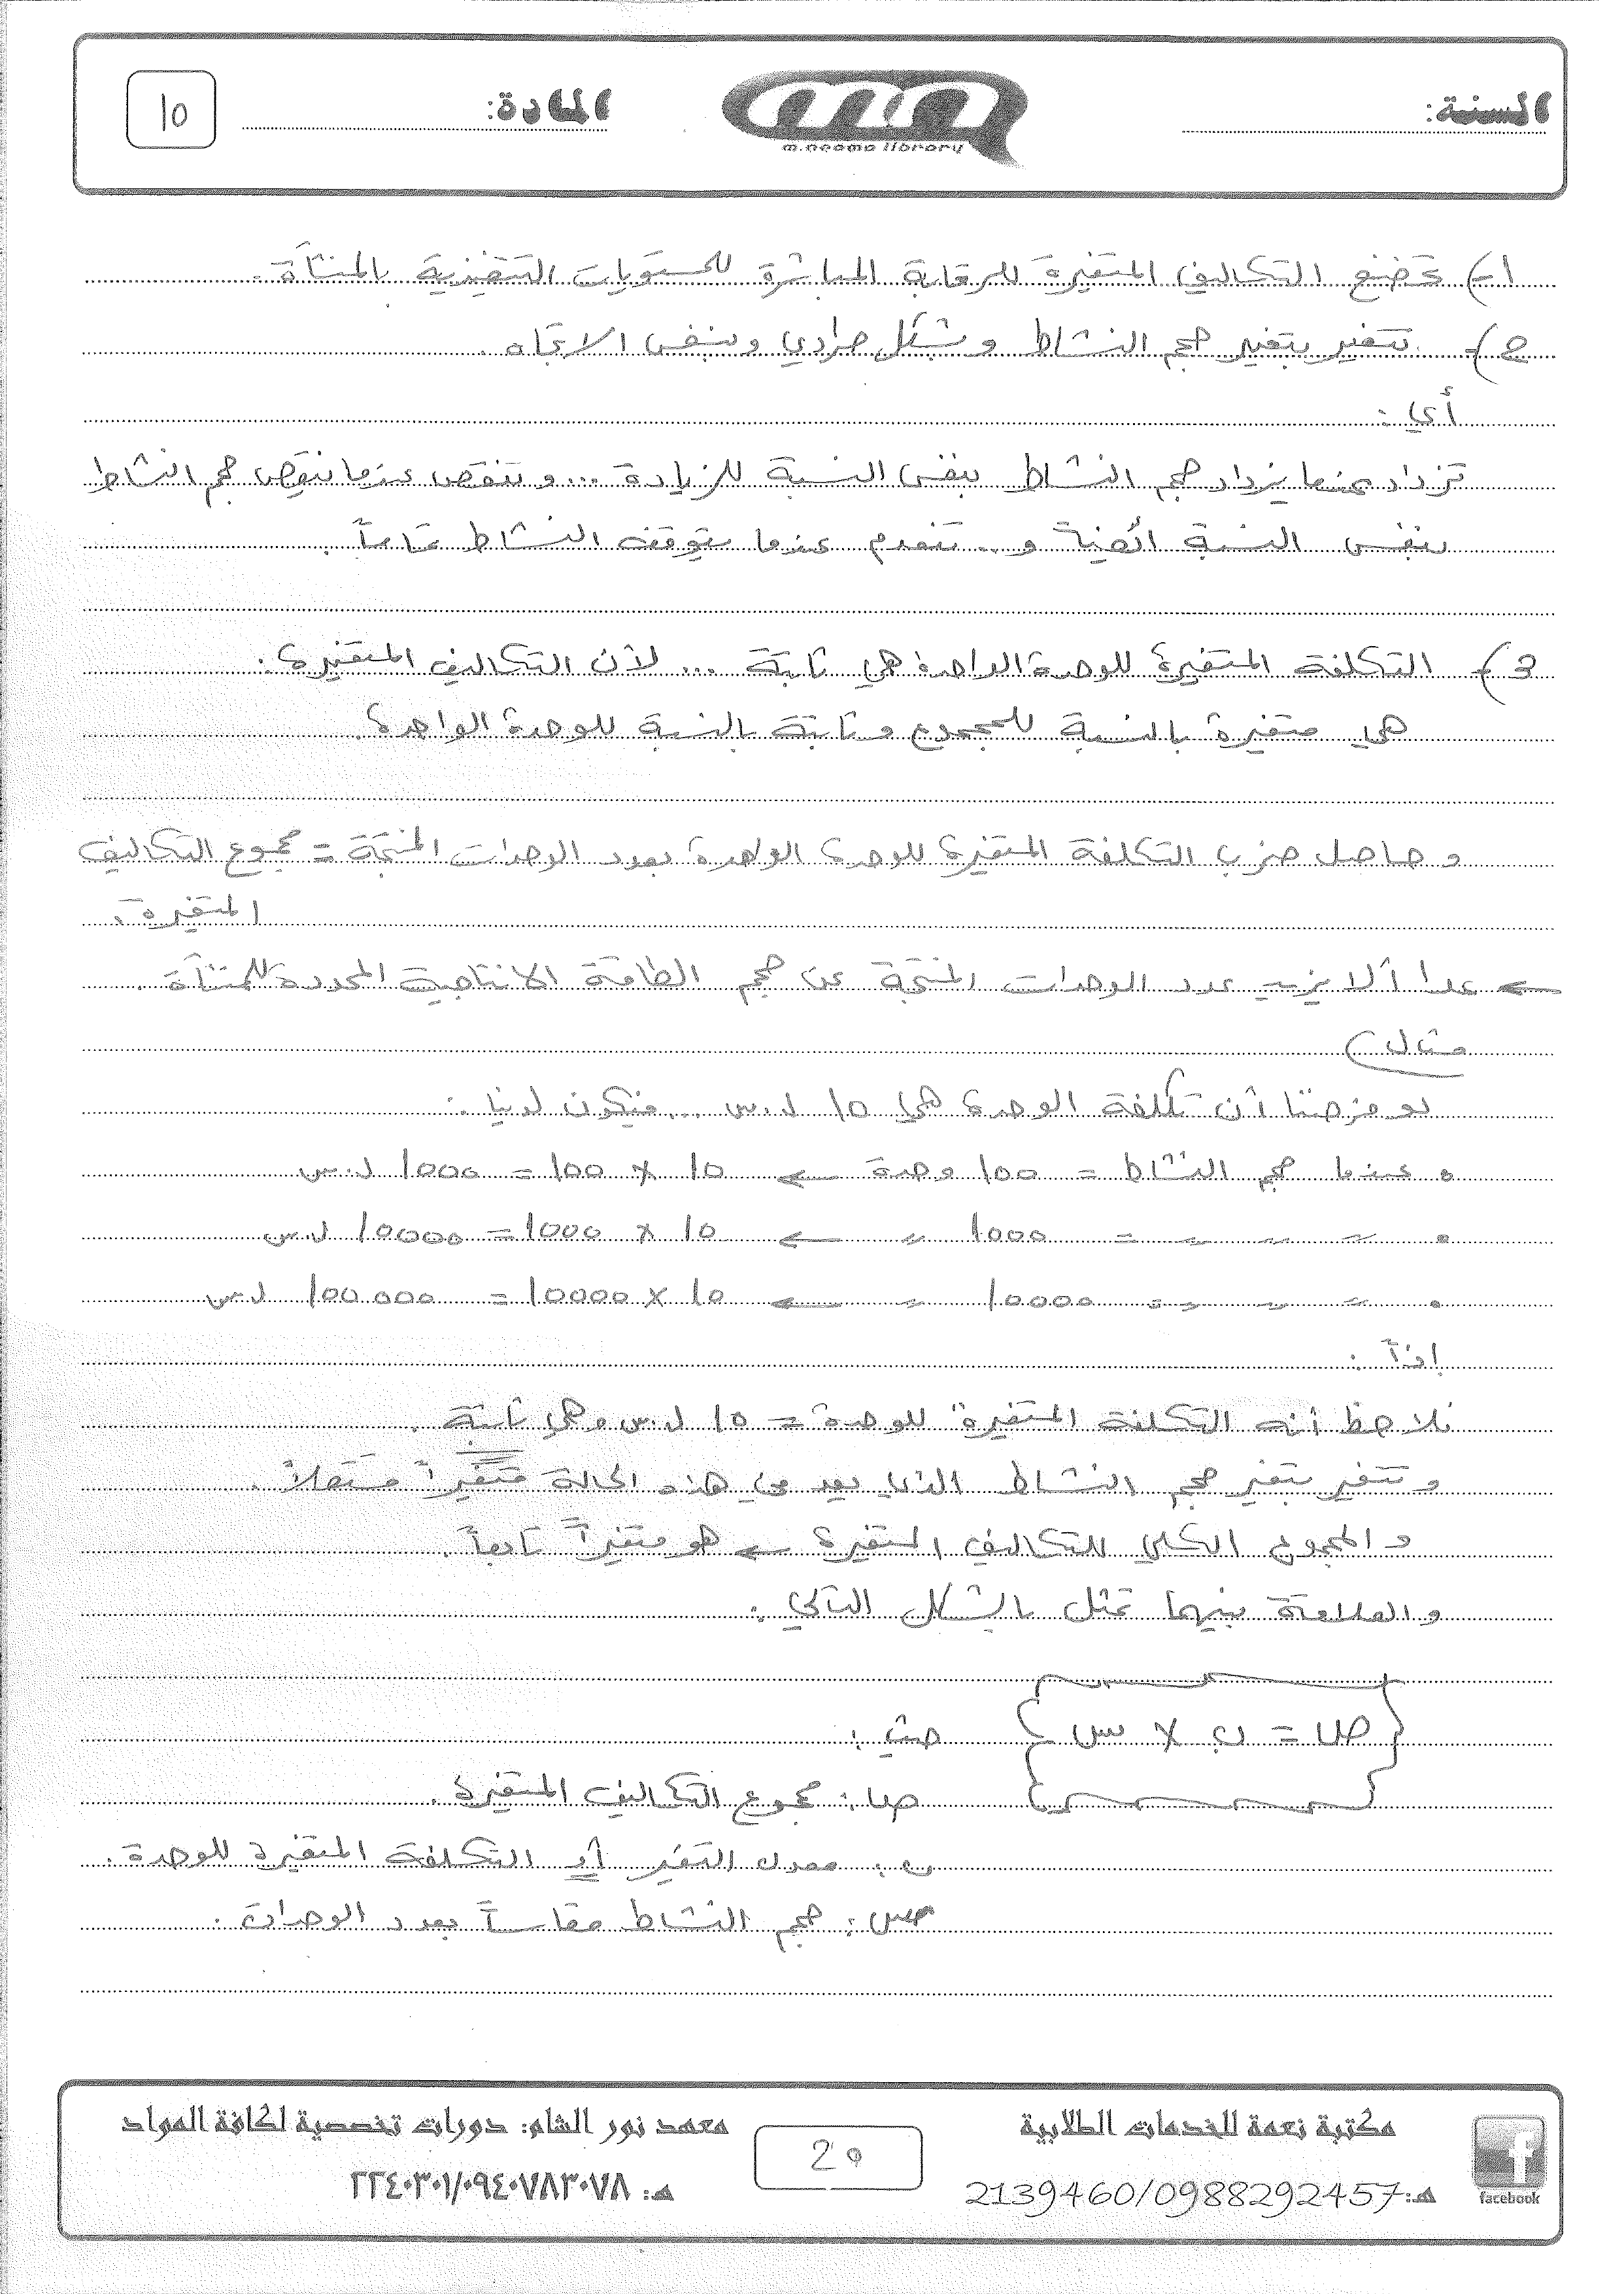 السنة:
m.neama library
المادة:
10
1-) تخضع التكاليف المتغيرة للرقابة المباشرة للمستويات التنفيذية بالمنشأة.
2-) تتغير بتغير حجم النشاط وبشكل طرادي وبنفس الاتجاه.
أي:
تزداد عندما يزداد حجم النشاط بنفس النسبة للزيادة ... وتنقص عندما ينقص حجم النشاط
بنفس النسبة أيضاً و... تنعدم عندما يتوقف النشاط تماماً.
3-) التكلفة المتغيرة للوحدة الواحدة هي ثابتة ... لأن التكاليف المتغيرة:
هي متغيرة بالنسبة للمجموع وثابتة بالنسبة للوحدة الواحدة.
وحاصل ضرب التكلفة المتغيرة للوحدة الواحدة بعدد الوحدات المنتجة = مجموع التكاليف
المتغيرة.
← عدا ألا يزيد عدد الوحدات المنتجة عن حجم الطاقة الانتاجية المحددة للمنشأة.
مثال)
لو فرضنا أن تكلفة الوحدة هي 10 ل.س ... فيكون لدينا:
• عندما حجم النشاط = 100 وحدة ← 10 × 100 = 1000 ل.س
• 〃 〃 〃 = 1000 〃 ← 10 × 1000 = 10000 ل.س
• 〃 〃 〃 = 10000 〃 ← 10 × 10000 = 100000 ل.س
إذاً:
نلاحظ أنه التكلفة المتغيرة للوحدة = 10 ل.س وهي ثابتة.
وتتغير بتغير حجم النشاط الذي يعد في هذه الحالة متغيراً مستقلاً.
والمجموع الكلي للتكاليف المتغيرة ← هو متغيراً تابعاً.
والعلاقة بينهما تمثل بالشكل التالي:
ص = ب × س حيث:
ص: مجموع التكاليف المتغيرة.
ب: معدل التغير أي التكلفة المتغيرة للوحدة.
س: حجم النشاط مقاساً بعدد الوحدات.
facebook
مكتبة نعمة للخدمات الطلابية
هـ: 2139460/0988292457
20
معهد نور الشام: دورات تخصصية لكافة المواد
هـ: ٢٢٤٠٣٠١/٠٩٤٠٧٨٣٠٧٨